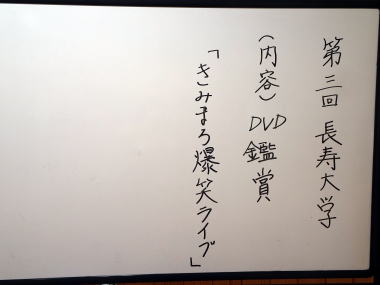 第三回長寿大学
（内容）DVD鑑賞
「きみまろ爆笑ライブ」